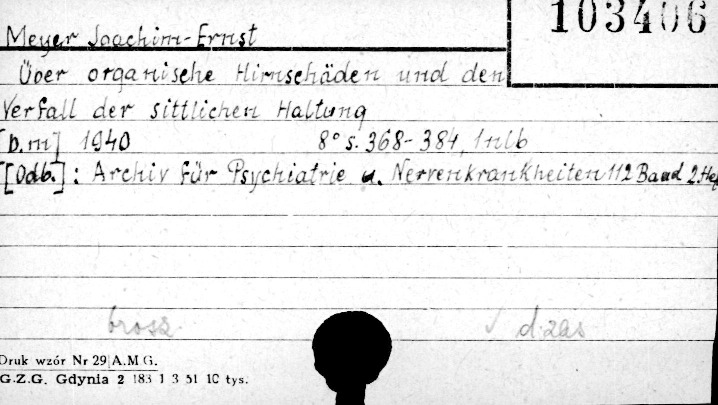 103406
Meyer Joachim-Ernst
Über organische Hirnschäden und den
Verfall der sittlichen Haltung
[b.m] 1940 8° s. 368-384, 1 nlb
[Odb.]: Archiv für Psychiatrie u. Nervenkrankheiten 112 Band 2.Hef
brosz. d.zas
Druk wzór Nr 29 A.M.G.
G.Z.G. Gdynia 2 183 1 3 51 10 tys.